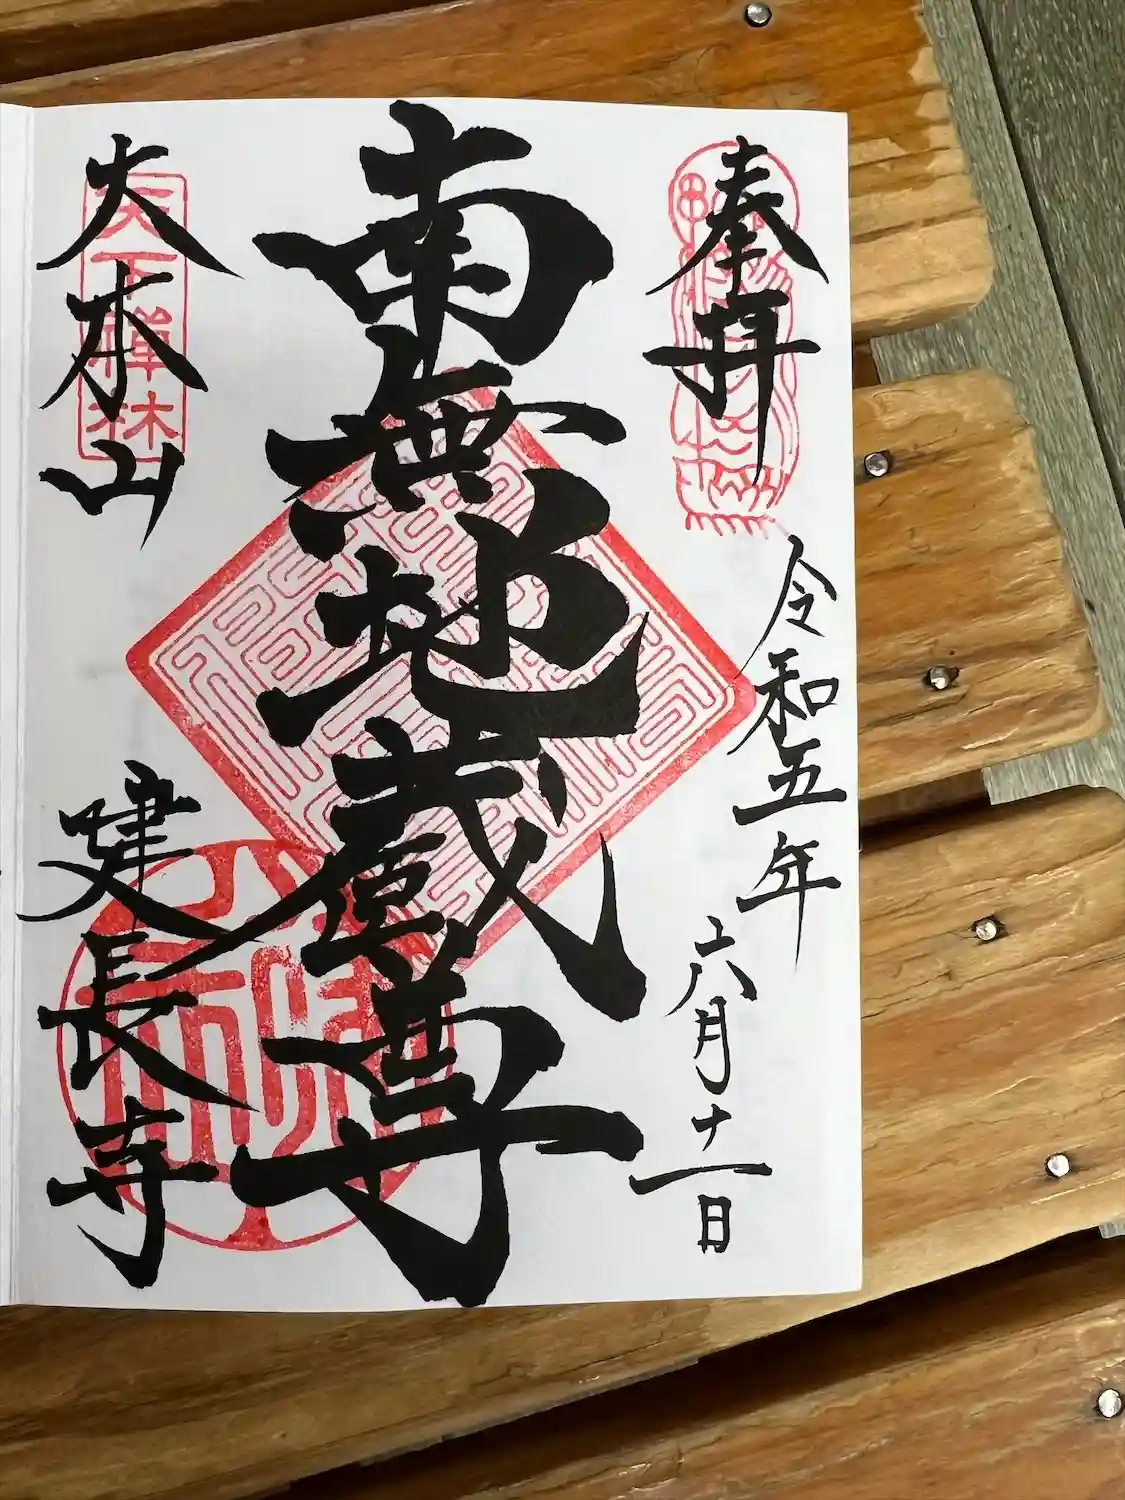 奉拝
令和五年
六月十一日
南無地蔵尊
大本山
建長寺
天下禅林